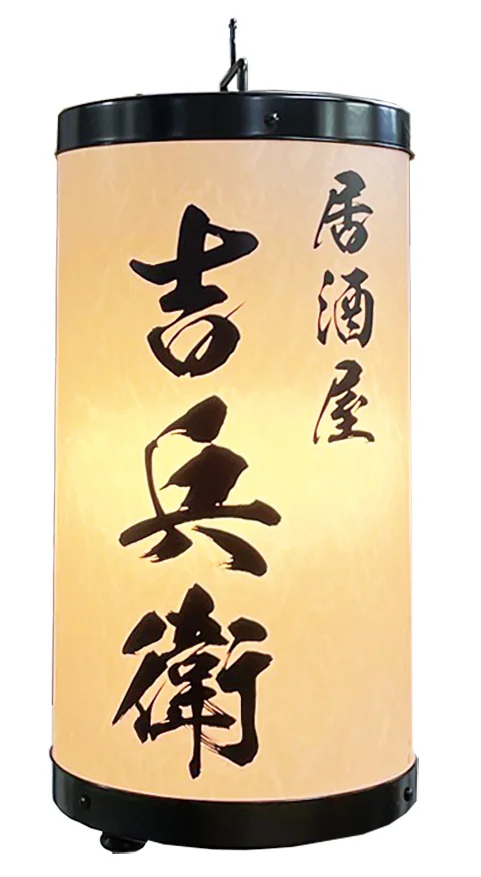 居酒屋
吉兵衛